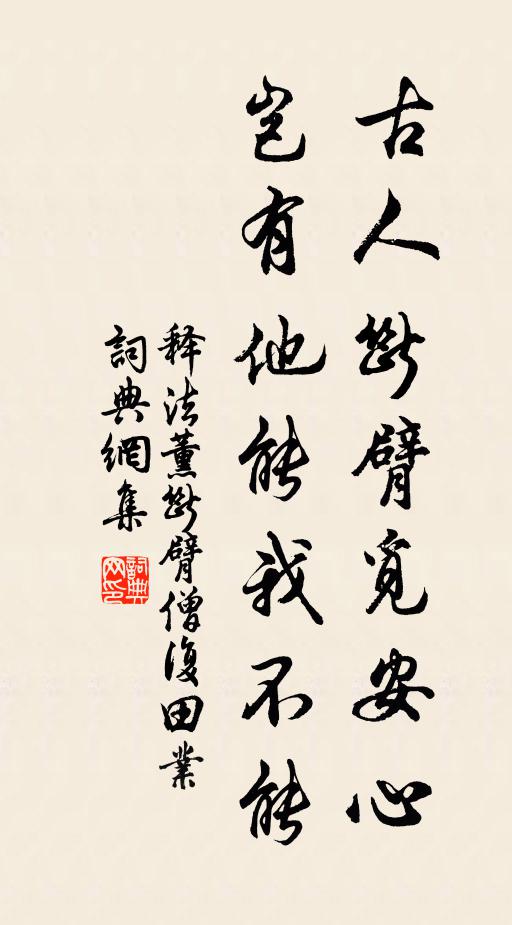 古人斷臂覓安心
豈有他能我不能
释法薰斷臂僧復田業
詞典網集
詞典網印